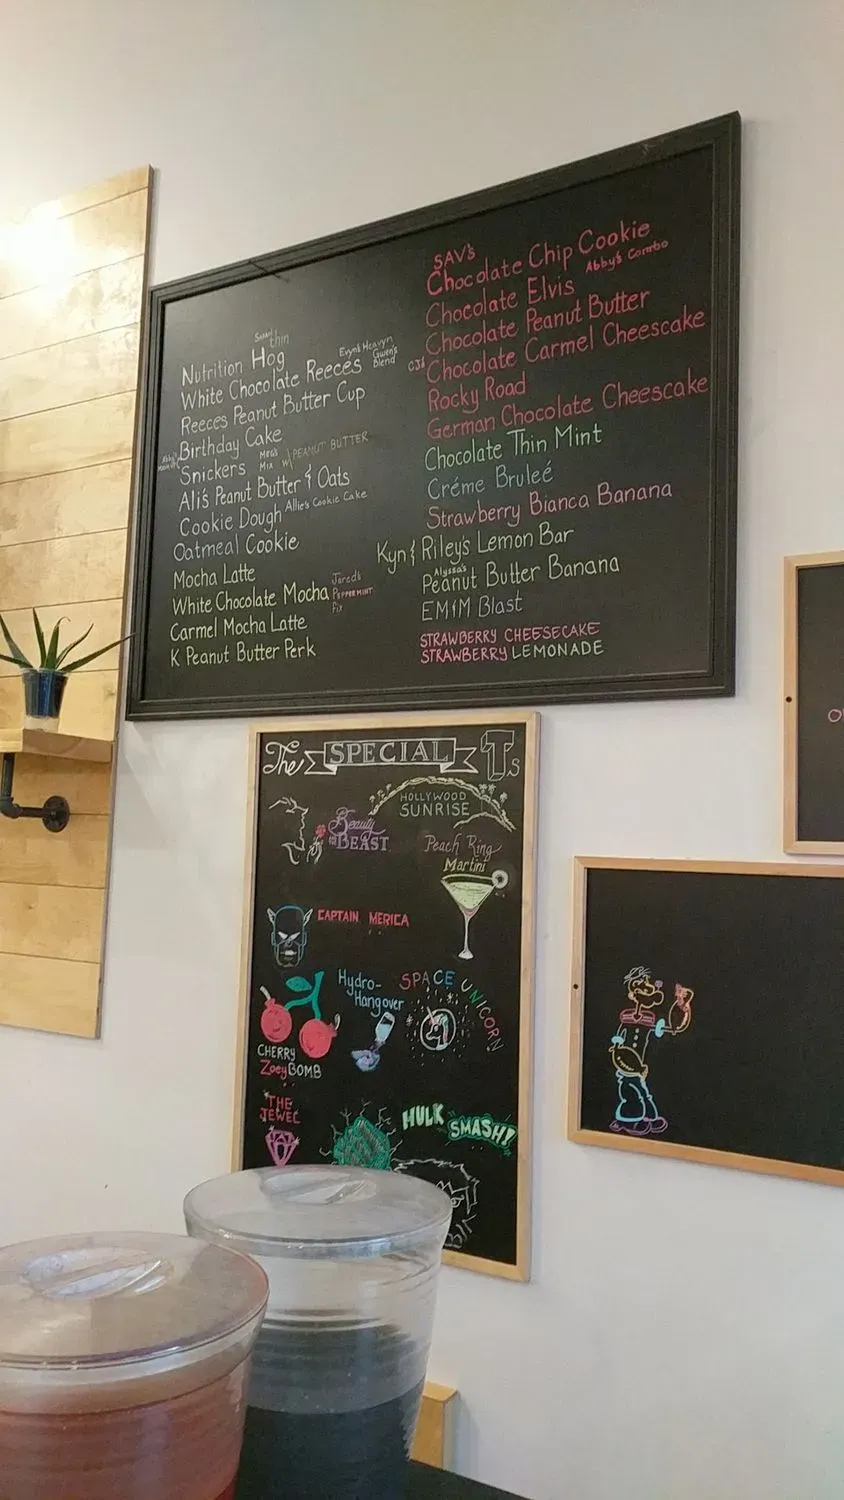 thin
Nutrition Hog
White Chocolate Reeces Gwen's Blend
Reeces Peanut Butter Cup
Birthday Cake
Snickers Meg's Mix w/ PEANUT BUTTER
Ali's Peanut Butter & Oats
Cookie Dough Allie's Cookie Cake
Oatmeal Cookie
Mocha Latte
White Chocolate Mocha Jared's PEPPERMINT Fix
Carmel Mocha Latte
K Peanut Butter Perk
SAV's
Chocolate Chip Cookie
Chocolate Elvis Abby's Combo
Chocolate Peanut Butter
CJ's Chocolate Carmel Cheescake
Rocky Road
German Chocolate Cheescake
Chocolate Thin Mint
Créme Bruleé
Strawberry Bianca Banana
Kyn & Riley's Lemon Bar
Alyssa's
Peanut Butter Banana
EM&M Blast
STRAWBERRY CHEESECAKE
STRAWBERRY LEMONADE
The SPECIAL Ts
HOLLYWOOD
SUNRISE
Beauty
BEAST
Peach Ring
Martini
CAPTAIN MERICA
Hydro-
Hangover
SPACE UNICORN
CHERRY
Zoey BOMB
THE
JEWEL
HULK SMASH!